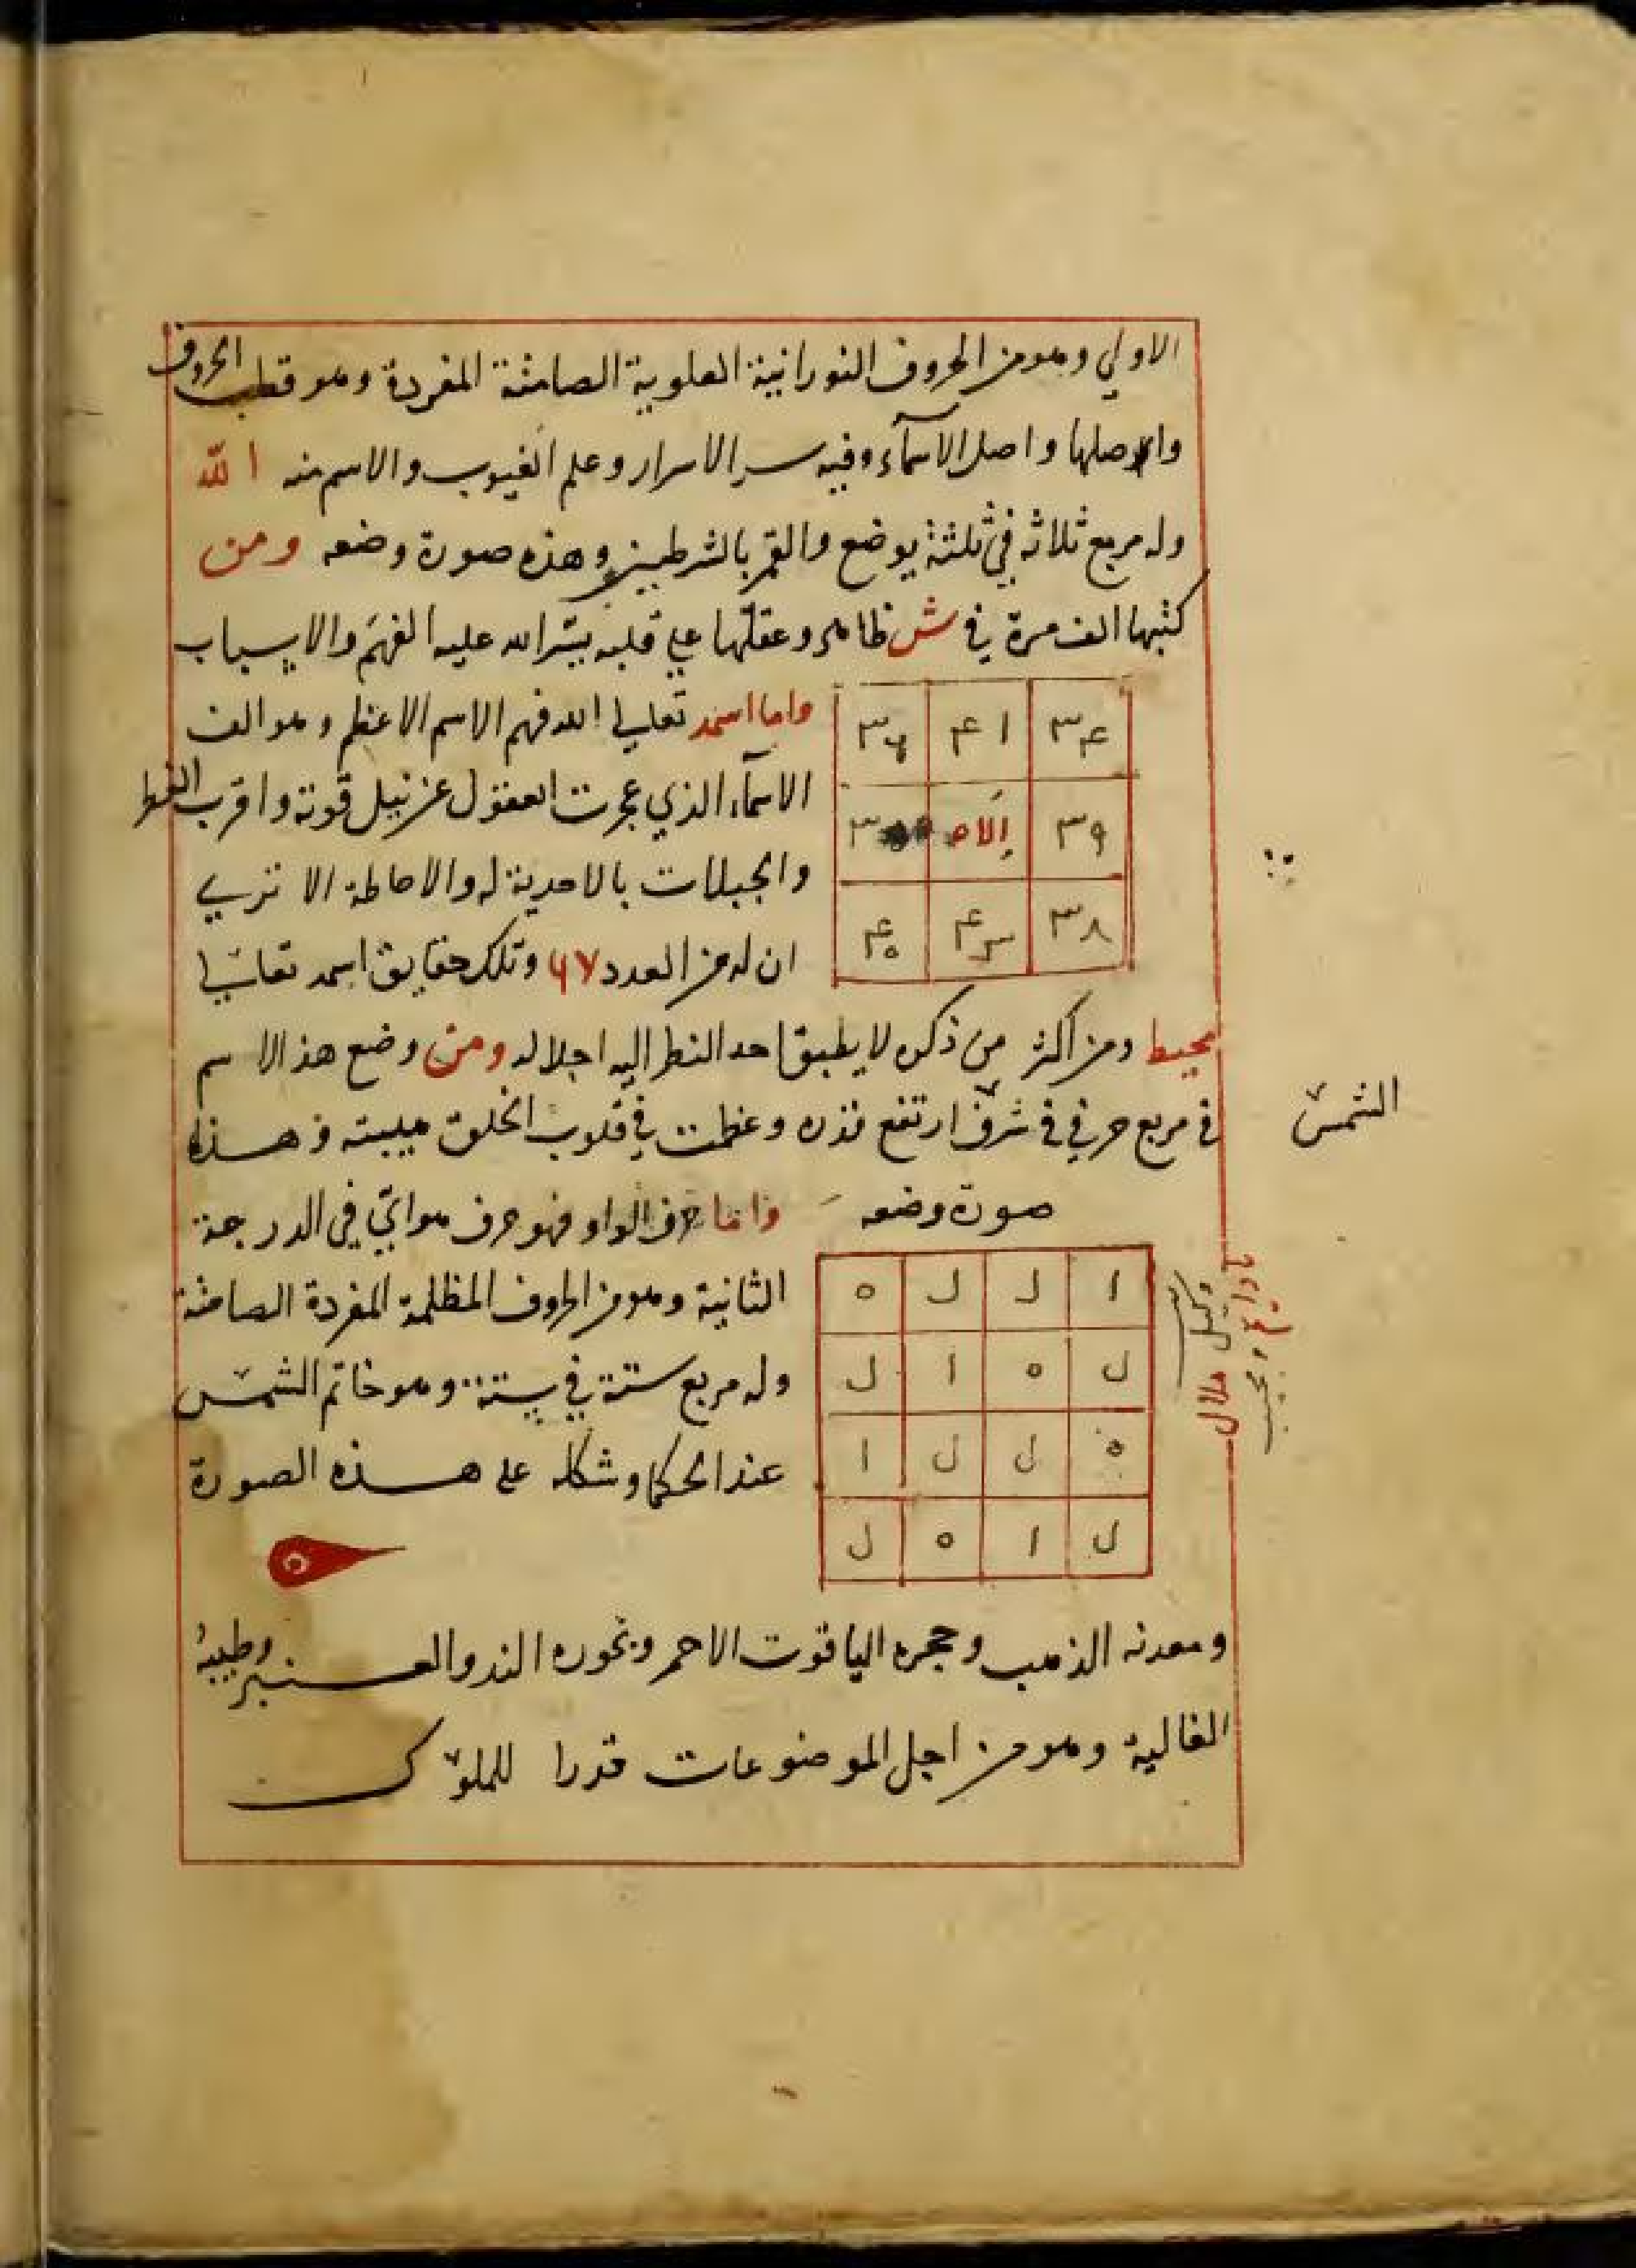 الاولي وهو من الحروف النورانية العلوية الصامتة المفردة وهو قطب الحروف
واصلها واصل الاسمآء وفيه سر الاسرار وعلم الغيوب والاسم منه الله
وله مربع ثلاثه في ثلثة يوضع والقمر بالشرطين وهذه صورة وضعه ومن
كتبها الف مرة في ش ظاهر وعقلها علي قلبه يسّر الله عليه الفهم والاسباب
واما اسمه تعالي الله فهم الاسم الاعظم وهو الف
الاسمآء الذي عجزت العقول عن نيل قوته واقرب
والجبلات بالاحدية له والاحاطة الا تري
ان له من العدد ٦٧ وتلك حقايق اسمه تعالي
٣٤ ٤١ ٣٦
٣٩ إلاه ٣
٣٨ ٤٣ ٤٥
محيط ومن اكثر من ذكره لا يطيق احد النظر اليه اجلاله ومن وضع هذ الاسم
في مربع حرفي في شرف ارتفع قدره وعظمت في قلوب الخلق هيبته وهذه
الشمس
صورة وضعه
واما حرف الواو فهو حرف هوائي في الدرجة
الثانية وهو من الحروف المظلمة المفردة الصامتة
وله مربع ستة في ستة وهو خاتم الشمس
عند الحكما وشكله على هذه الصورة
ا ل ل ه
ل ه ا ل
ه ل ل ا
ل ا ه ل
ومعدنه الذهب وحجره الياقوت الاحمر وبخوره الند والعنبر وطيبه
الغالية وهو من اجل الموضوعات قدرا للملوك